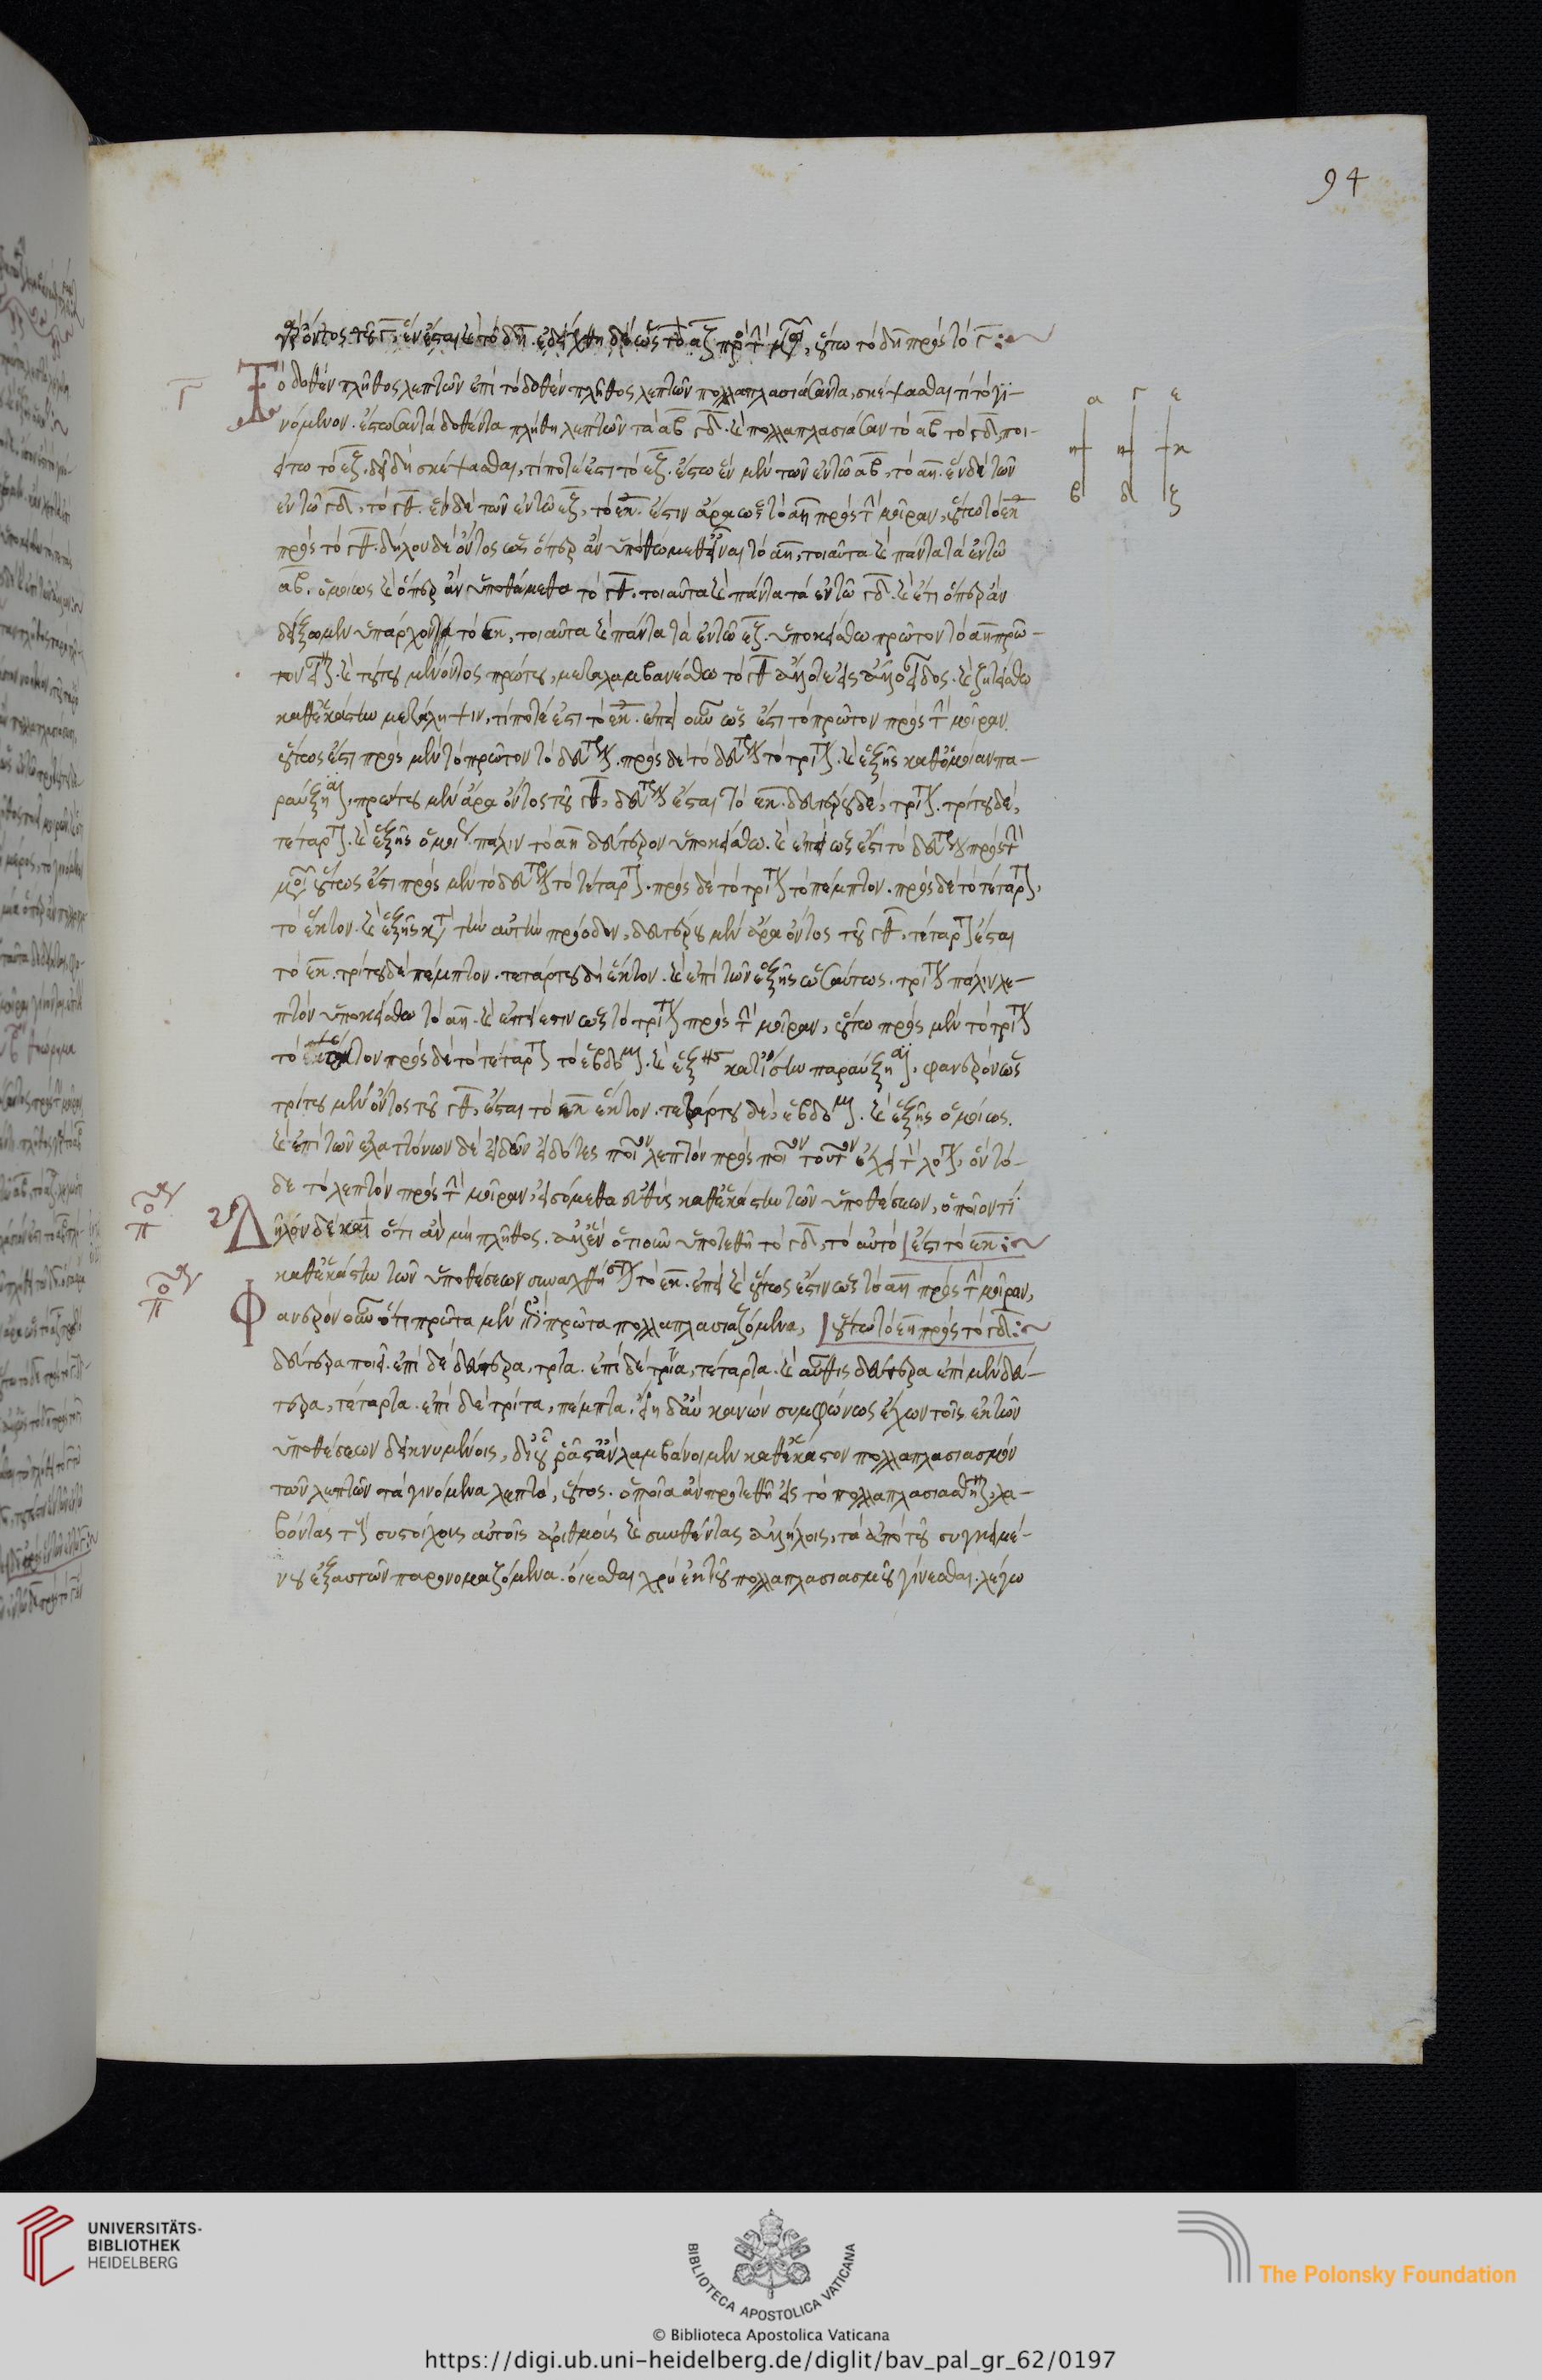 ὄντος τοῦ γ, ἓν ἔσται καὶ τὸ δη. ἐδείχθη δὲ ὡς τὸ αζ πρὸς τὴν μοῖραν, οὕτω τὸ δη πρὸς τὸ γ:~
Γ Τὸ δοθὲν πλῆθος λεπτῶν ἐπὶ τὸ δοθὲν πλῆθος λεπτῶν πολλαπλασιάσαντα, σκέψασθαι τί τὸ γι-
νόμενον. ἔστωσαν τὰ δοθέντα πλήθη λεπτῶν τὰ αβ γδ. καὶ πολλαπλασιάσαν τὸ αβ τὸ γδ, ποι-
είτω τὸ εζ. δεῖ δὴ σκέψασθαι, τί ποτέ ἐστι τὸ εζ. ἔστω ἓν μὲν τῶν ἐν τῷ αβ, τὸ αη. ἓν δὲ τῶν
ἐν τῷ γδ, τὸ γθ. ἓν δὲ τῶν ἐν τῷ εζ, τὸ εκ. ἔστιν ἄρα ὡς τὸ αη πρὸς τὴν μοῖραν, οὕτω τὸ εκ
πρὸς τὸ γθ. δήλου δὲ ὄντος ὡς ὅπερ ἂν ὑποθώμεθα εἶναι τὸ αη, τοιαῦτα καὶ πάντα τὰ ἐν τῷ
αβ. ὁμοίως καὶ ὅπερ ἂν ὑποθώμεθα τὸ γθ, τοιαῦτα καὶ πάντα τὰ ἐν τῷ γδ. καὶ ἔτι ὅπερ ἂν
δείξωμεν ὑπάρχον τὸ εκ, τοιαῦτα καὶ πάντα τὰ ἐν τῷ εζ. ὑποκείσθω πρῶτον τὸ αη πρῶ-
τον εἶναι. καὶ τούτου μένοντος πρώτου, μεταλαμβανέσθω τὸ γθ ἄλλοτε εἰς ἄλλο εἶδος. καὶ ζητείσθω
καθ' ἑκάστην μετάληψιν, τί ποτέ ἐστι τὸ εκ. ἐπεὶ οὖν ὡς ἐστὶ τὸ πρῶτον πρὸς τὴν μοῖραν
οὕτως ἐστὶ πρὸς μὲν τὸ πρῶτον τὸ δεύτερον. πρὸς δὲ τὸ δεύτερον τὸ τρίτον. καὶ ἑξῆς καθ' ὁμοίαν πα-
ραύξησιν, πρώτου μὲν ἄρα ὄντος τοῦ γθ, δεύτερον ἔσται τὸ εκ. δευτέρου δέ, τρίτον. τρίτου δέ,
τέταρτον. καὶ ἑξῆς ὁμοίως. πάλιν τὸ αη δεύτερον ὑποκείσθω. καὶ ἐπεὶ ὡς ἐστὶ τὸ δεύτερον πρὸς τὴν
μοῖραν οὕτως ἐστὶ πρὸς μὲν τὸ δεύτερον τὸ τέταρτον. πρὸς δὲ τὸ τρίτον τὸ πέμπτον. πρὸς δὲ τὸ τέταρτον,
τὸ ἕκτον. καὶ ἑξῆς κατὰ τὴν αὐτὴν πρόοδον, δευτέρου μὲν ἄρα ὄντος τοῦ γθ, τέταρτον ἔσται
τὸ εκ. τρίτου δὲ πέμπτον. τετάρτου δὴ ἕκτον. καὶ ἐπὶ τῶν ἑξῆς ὡσαύτως. τρίτον πάλιν λε-
πτὸν ὑποκείσθω τὸ αη. καὶ ἐπεί ἐστιν ὡς τὸ τρίτον πρὸς τὴν μοῖραν, οὕτω πρὸς μὲν τὸ τρίτον
τὸ ἕκτον πρὸς δὲ τὸ τέταρτον τὸ ἕβδομον. καὶ ἑξῆς κατ' ἴσην παραύξησιν, φανερὸν ὡς
τρίτου μὲν ὄντος τοῦ γθ, ἔσται τὸ εκ ἕκτον. τετάρτου δέ, ἕβδομον. καὶ ἑξῆς ὁμοίως.
καὶ ἐπὶ τῶν ἐλαττόνων δὲ εἰδῶν εἰδότες ποῖον λεπτὸν πρὸς ποῖον τοῦτον ἔχει τὸν λόγον, ὃν τό-
δε τὸ λεπτὸν πρὸς τὴν μοῖραν, εἰσόμεθα εὐθὺς καθ' ἑκάστην τῶν ὑποθέσεων, ὁποῖον τί
Δῆλον δὲ καὶ ὅτι ἂν μὴ πλῆθος. ἀλλ' ἓν ὁτιοῦν ὑποτεθῇ τὸ γδ, τὸ αὐτὸ | ἐστὶ τὸ εκ:~
καθ' ἑκάστην τῶν ὑποθέσεων συναχθήσεται τὸ εκ. ἐπεὶ καὶ οὕτως ἐστὶν ὡς τὸ αη πρὸς τὴν μοῖραν,
Φανερὸν οὖν ὅτι πρῶτα μὲν ἐπὶ πρῶτα πολλαπλασιαζόμενα, | οὕτω τὸ εκ πρὸς τὸ γδ:~
δεύτερα ποιεῖ. ἐπὶ δὲ δεύτερα, τρίτα. ἐπὶ δὲ τρίτα, τέταρτα. καὶ αὖθις δεύτερα ἐπὶ μὲν δεύ-
τερα, τέταρτα. ἐπὶ δὲ τρίτα, πέμπτα. εἴη δ' ἂν κανὼν συμφώνως ἔχων τοῖς ἐκ τῶν
ὑποθέσεων δεικνυμένοις, δι' οὗ ῥᾷστ' ἂν λαμβάνοιμεν καθ' ἕκαστον πολλαπλασιασμὸν
τῶν λεπτῶν τὰ γινόμενα λεπτά, οὗτος. ὁποῖα ἂν προτεθῇ εἰς τὸ πολλαπλασιασθῆναι, λα-
βόντας τοὺς συστοίχους αὐτοῖς ἀριθμοὺς καὶ συνθέντας ἀλλήλοις, τὰ ἀπὸ τοῦ συγκειμέ-
νου ἐξ αὐτῶν παρονομαζόμενα. οἴεσθαι χρὴ ἐκ τοῦ πολλαπλασιασμοῦ γίνεσθαι. λέγω
94
α γ ε
η θ κ
β δ ζ
UNIVERSITÄTS-
BIBLIOTHEK
HEIDELBERG
BIBLIOTECA APOSTOLICA VATICANA
© Biblioteca Apostolica Vaticana
The Polonsky Foundation
https://digi.ub.uni-heidelberg.de/diglit/bav_pal_gr_62/0197